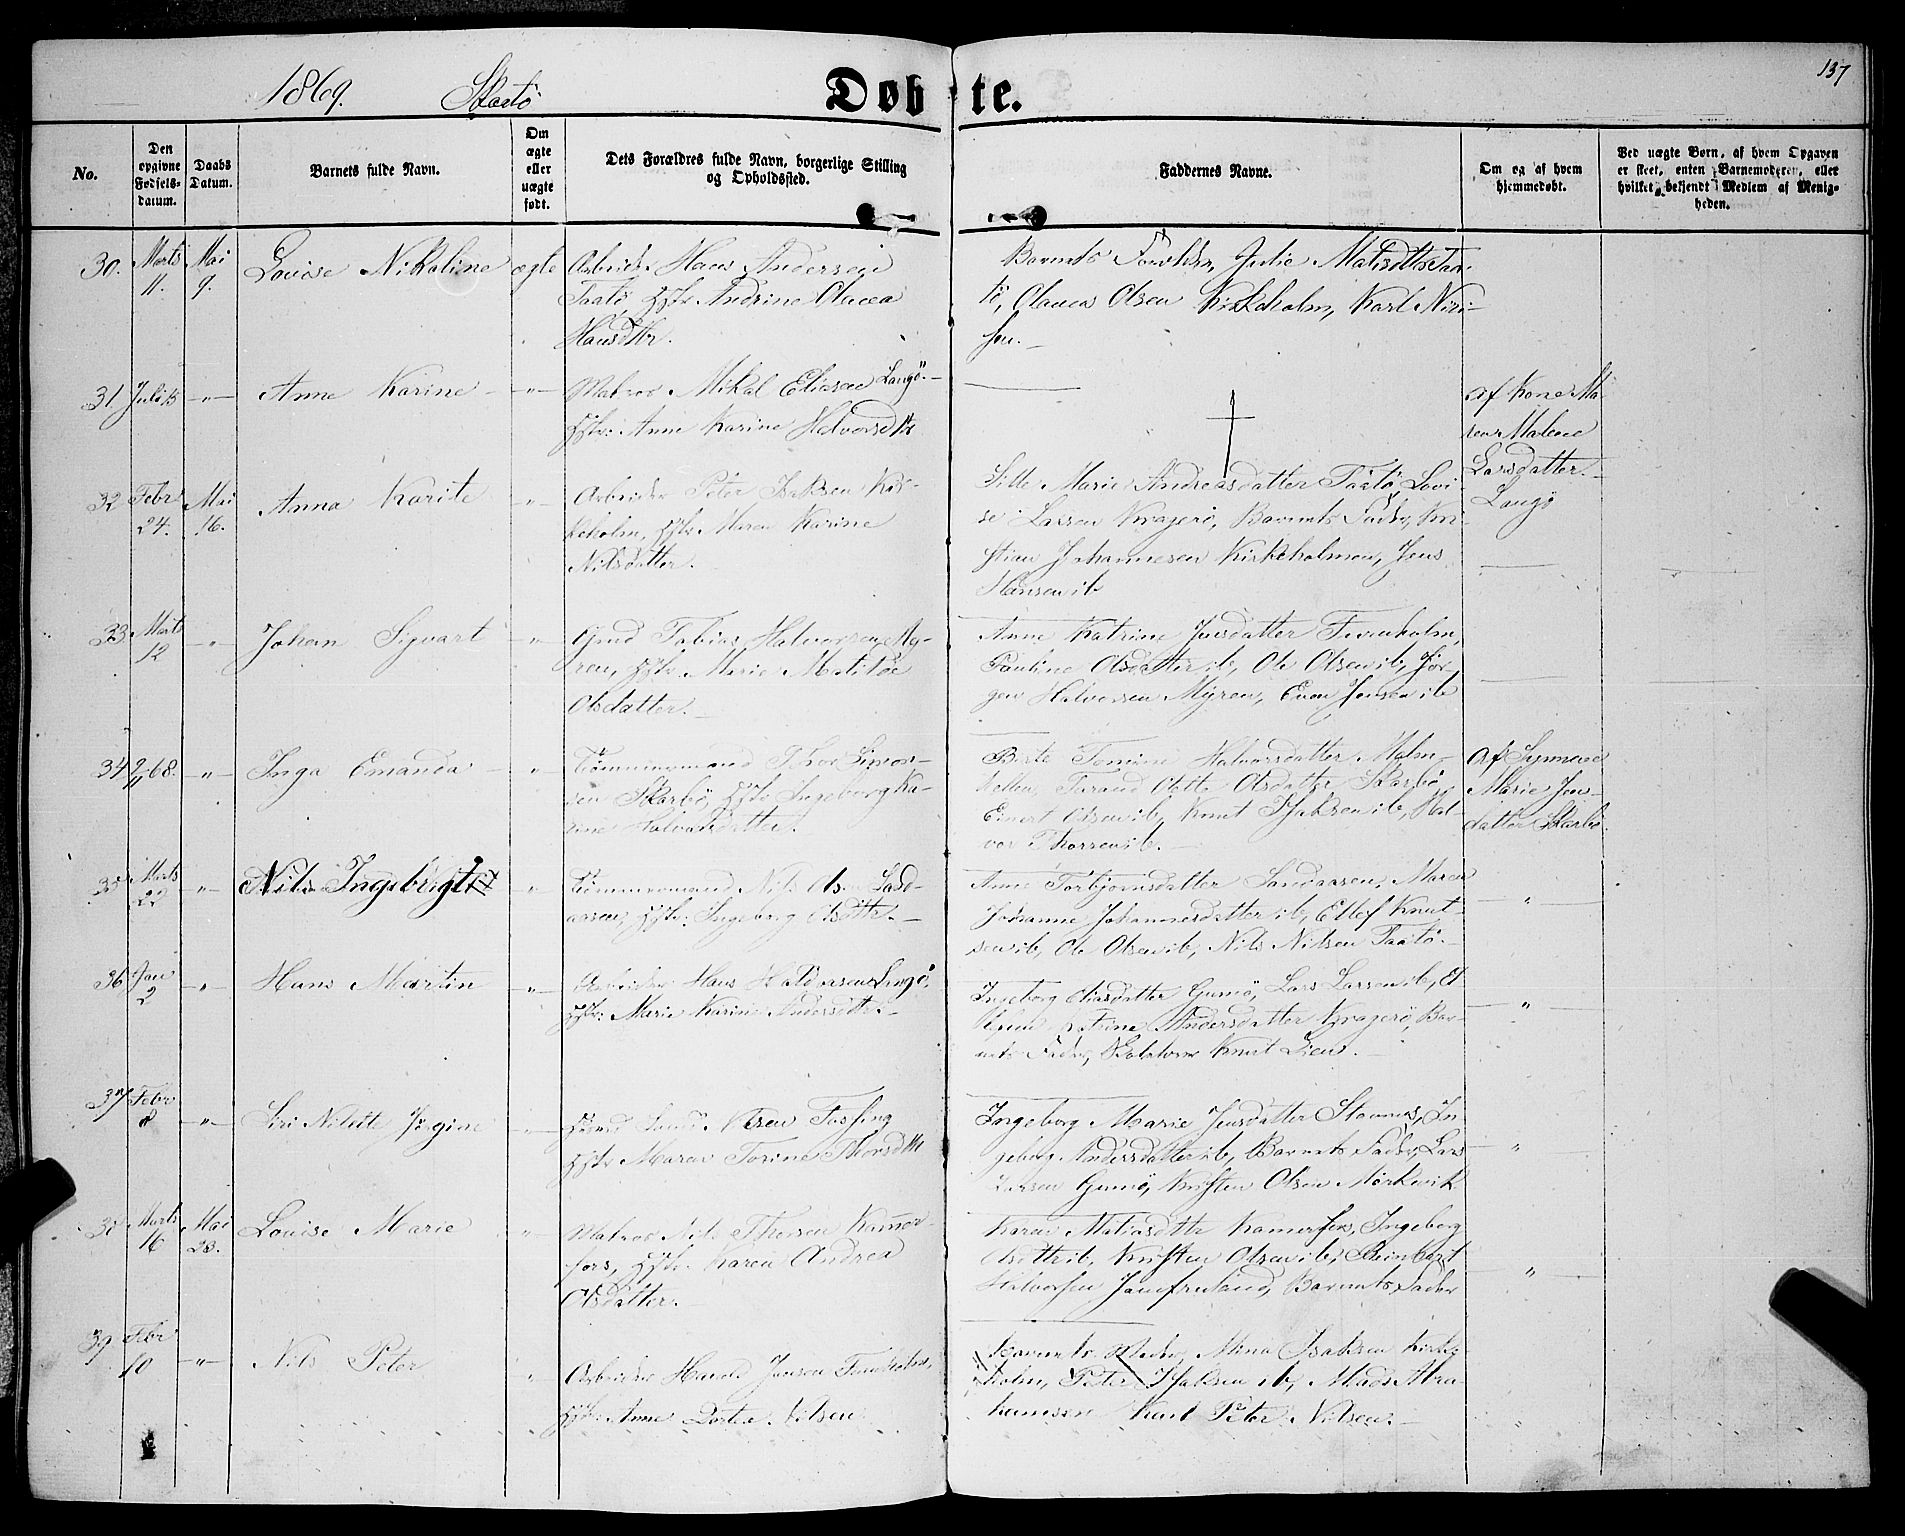 1869. Skaatö
Døbte.
137
No.
Den opgivne Fødsels-datum.
Daabs Datum.
Barnets fulde Navn.
Om ægte eller uægte født.
Dets Forældres fulde Navn, borgerlige Stilling og Opholdssted.
Faddernes Navne.
Om og af hvem hjemmedøbt.
Ved uægte Børn, af hvem Opgaven er skeet, enten Barnemoderen, eller hvilket bekjendt Medlem af Menigheden.
30. Marts 11. Mai 9. Lovise Nikoline ægte
Arbeider Hans Andersen
Taatö, Hstr Andrine Olava
Hansdtr.
Barnets Forældre, Julie Matisdtr Taa-
tö, Olaves Olsen Kirkeholm, Karl Niri-
sen.
31 Juli 15 " Anne Karine "
Matros Mikal Eliasen Langö.
Hstr: Anne Karine Halvorsdtr
af Kone Ma-
ren Malene
Larsdatter
Langö
32 Febr 24. Mai 16. Anna Karite "
Arbeider Peter Isaksen Kir-
keholm, Hstr Maren Karine
Nilsdatter.
Sille Marie Andreasdatter Taatö, Lovi-
se Larsen Kragerö, Barnets Fader, Kri-
stian Johannesen Kirkeholmen, Jens
Hansen ib
33 Marts 12 " Johan Sigvart "
Gmd Tobias Halvorsen My-
ren, Hstr. Marie Matilde
Olsdatter.
Anne Katrine Jensdatter Furuholm,
Pauline Olsdatter ib, Ole Olsen ib, Jör-
gen Halvorsen Myren, Even Jensen ib
34 9/11 68. " Inga Emanda "
Tömmermand Thor Simon-
sen Skarbö, Hstr Ingeborg Ka-
rine Halvorsdatter.
Berte Tomine Halvorsdatter Malm-
hellen, Turand Olette Olsdatter Skarbö,
Einert Olsen ib, Knut Isaksen ib, Hal-
vor Thorsen ib.
af Synneve
Marie Jens-
datter Skarbö.
35 Marts 22 " Nils Ingebrigt "
Tömmermand Nils Olsen Sand-
aasen, Hstr: Ingeborg Olsdtr.
Anne Torbjornsdatter Sandaasen, Maren
Johanne Johannesdatter ib, Ellef Knut-
sen ib, Ole Olsen ib, Nils Nilsen Taatö.
"
36 Jan 2 " Hans Martin "
Arbeider Hans Langö,
Hstr: Marie Karine Andersdtr.
Ingeborg Eliasdatter Gumö, Lars Larsen ib, El-
Katrine Andersdatter Kragerö, Bar-
nets Fader, Knut Lien.
"
37 Febr 8 " Siri Nilette Jögine
Olsen Fossing
Hstr Maren Torine Thorsdtr
Ingeborg Marie Jensdatter Stavnes, In-
geborg Andersdatter ib, Barnets Fader, Lars
Larsen Gumö, Kristen Olsen Mörkevik
"
38 Marts 16 Mai 23. Lovise Marie "
Matros Nils Thorsen Kammer-
fors, Hstr. Karen Andrea
Olsdatter.
Karen Matiasdtr Kamerfos, Ingeborg
Olsdtr ib, Kristen Olsen ib, Reinhert
Halvorsen Jomfruland, Barnets Fader
"
39 Febr 10 " Nils Peter "
Arbeider Jensen Furuholm,
Hstr: Anne Dortea Nilsen
Barnets Moder, Mina Isaksen Kirke-
holm, Peter Isaksen ib, Mads Abra-
hamsen Karl Peter Nilsen.